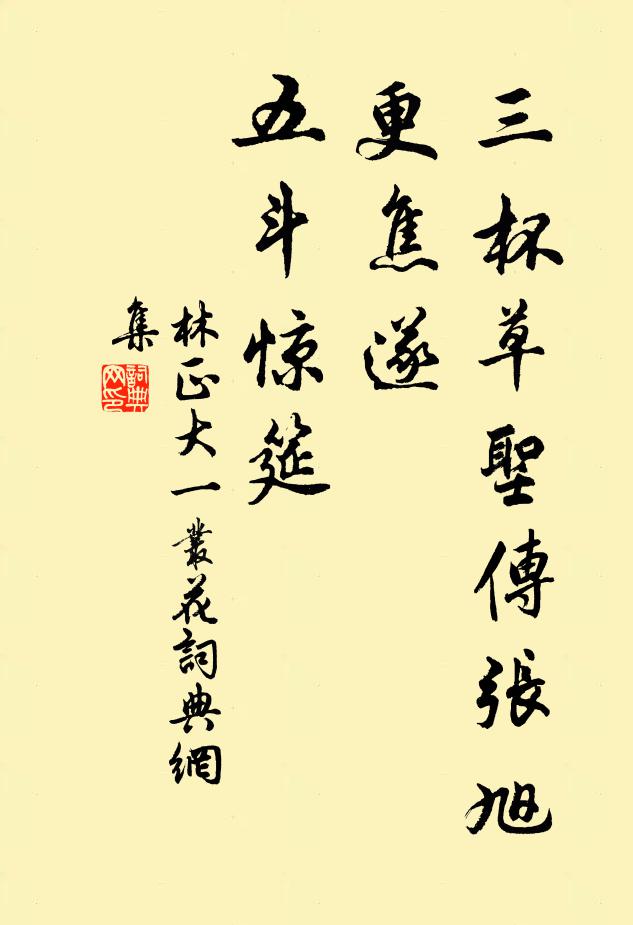 三杯草聖傳張旭
更焦遂
五斗惊筵
林正大一叢花詞典網
集
詞典
网印